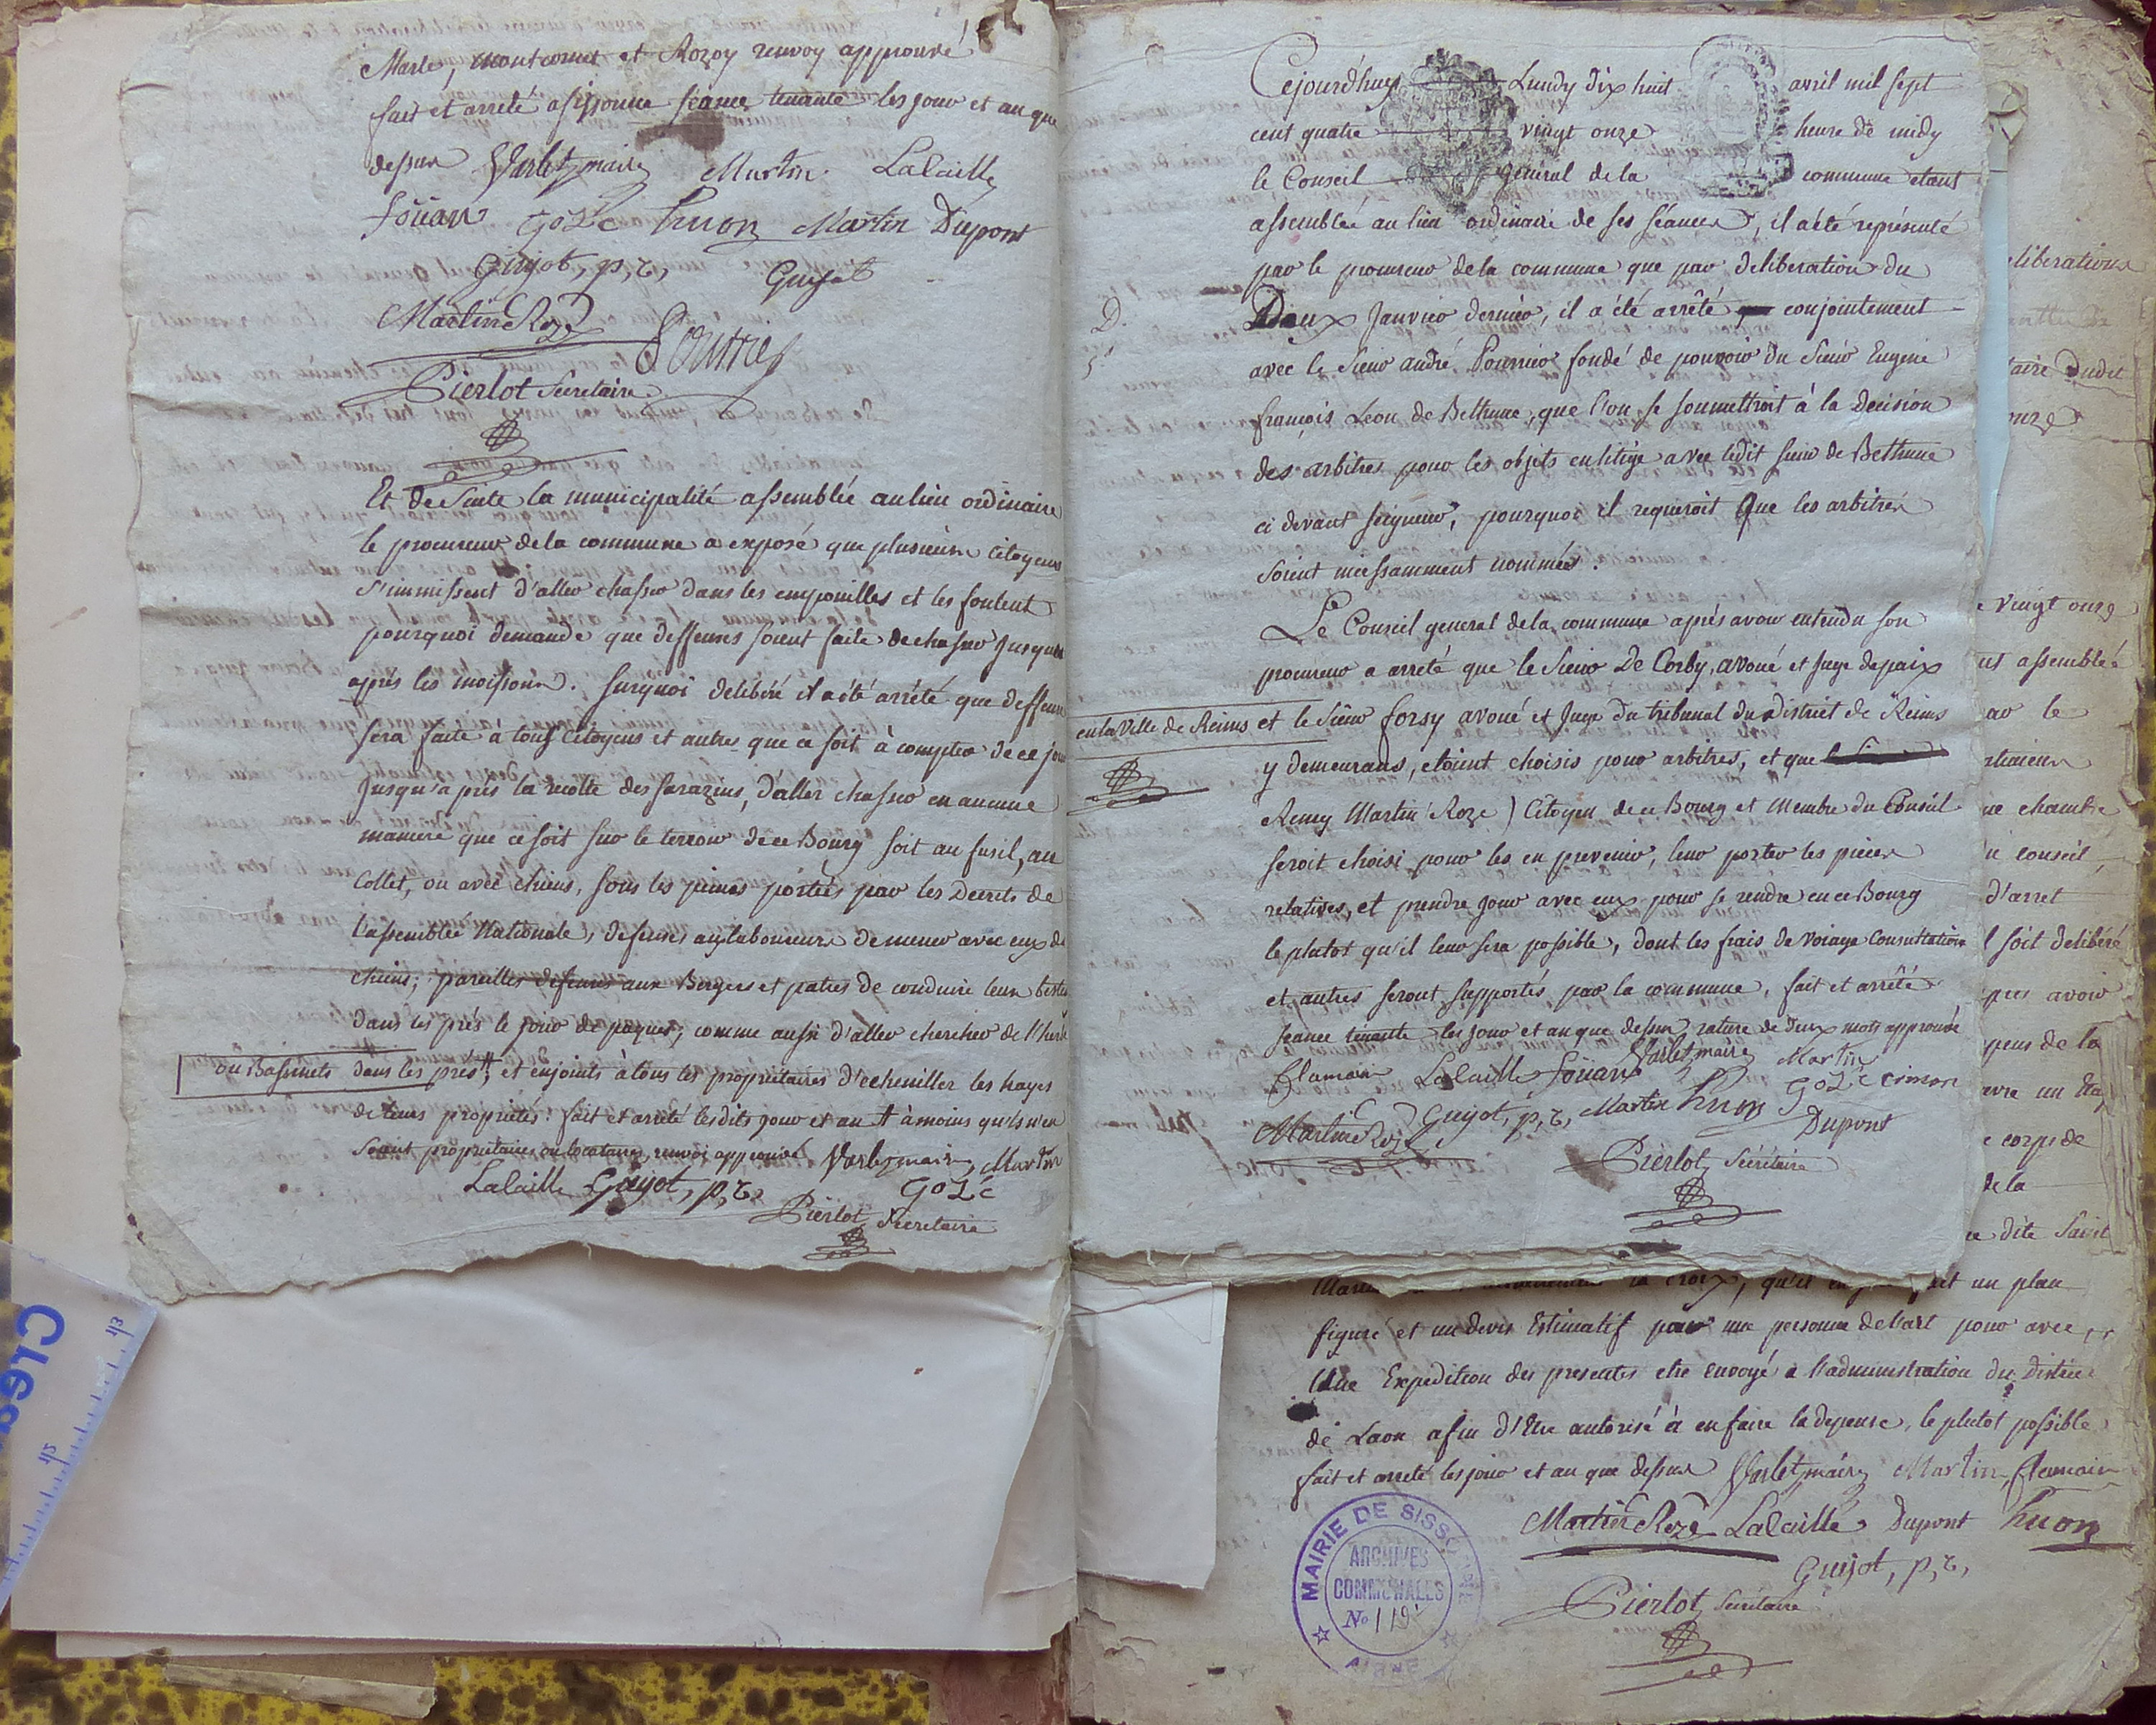 Marle, montcornet et Rozoy renvoy approuvé
fait et arreté a sissonne séance tenante les jour et an que
dessus Varlet, maire Martin Lalaille
foüan Gozé huon Martin Dupont
Guyot, p, c, Guyot
Martin Rozé
Pierlot Secretaire
Et de Suite la municipalité assemblée au lieu ordinaire
le procureur de la commune a exposé que plusieurs Citoyens
s'immissent d'aller chasser dans les empouilles et les foulent
pourquoi demande que deffenses soient faite de chasser jusqu
apres les moissons. surquoi deliberé il a été arrété que deffense
sera faite a tous Citoyens et autres que ce soit à compter de ce jour
Jusqu'a près la recolte des sarazins, d'aller chasser en aucune
maniere que ce soit sur le terroir de ce Bourg soit au fusil, au
Collet, ou avec chiens, sous les peines portées par les Decrets de
l'assemblée Nationale, defenses aux laboureurs de mener avec eux de
chiens; pareilles defenses aux Bergers et patres de conduire leurs bestia
dans les prés le jour de paques; comme aussi d'aller chercher de l'herbe
ou Bassinets dans les prés; et enjoints à tous les propriétaires d'echeniller les hayes
de leurs propriétés. fait et arreté lesdits jour et an + à moins qu'ils n'en
soient proprietaires ou locataires, renvoi approuvé Varlet, maire Martin
Lalaille Guyot, p, c, Gozé
Pierlot Secretaire
Cejourd'huy Lundy dix huit avril mil sept
cent quatre vingt onze heure de midy
le Conseil general de la commune etant
assemblée au lieu ordinaire de ses séances, il a été représenté
par le procureur de la commune que par deliberation du
D. Deux Janvier dernier, il a été arrêté conjointement
5 avec le Sieur andré Pourrier fondé de pouvoir du Sieur Eugene
françois Leon de Bethune, que l'on se soumettroit à la Decision
des arbitres pour les objets en litige avec ledit sieur de Bethune
ci devant seigneur, pourquoi il requieroit que les arbitres
soient incessamment nommés.
Le Conseil general de la commune après avoir entendu son
procureur a arreté que le Sieur De Corby, avoué et juge de paix
en la Ville de Reims et le Sieur forsy avoué et Juge du tribunal du District de Reims
y demeurans, etoient choisis pour arbitres, et que
Remy Martin Roze) Citoyen de ce Bourg et Membre du Conseil
seroit choisi pour les en prevenir, leur porter les pieces
relatives, et prendre jour avec eux pour se rendre en ce Bourg
le plutot qu'il leur sera possible, dont les frais de voiage Consultation
et autres seront supportés par la commune, fait et arrêté
seance tenante les jour et an que dessus, rature de deux mots approuvée
flamain Lalaille foüan Varlet, maire Martin
Martin Rozé Guyot, p, c, Martin huon Gozé Dupont
Pierlot Sécrétaire
eliberations
taire Dudit
onze
e vingt onze
nt assemblée
ar le
ne chambre
n conseil,
d'arret
l soit deliberé
pres avoir
pens de la
e corps de
de la
e dite Saint
la croix, un plan
figuré et un devis Estimatif par une personne de l'art pour avec
Une Expedition des presentes etre envoyé a l'administration du District
de Laon afin d'Etre autorisé à en faire la depense, le plutot possible
fait et arreté les jour et an que dessus Varlet, maire Martin flamain
Martin Rozé Lalaille Dupont huon
Guyot, p, c,
Pierlot Secrétaire
MAIRIE DE SISSONNE
ARCHIVES
COMMUNALES
No 119
Crea